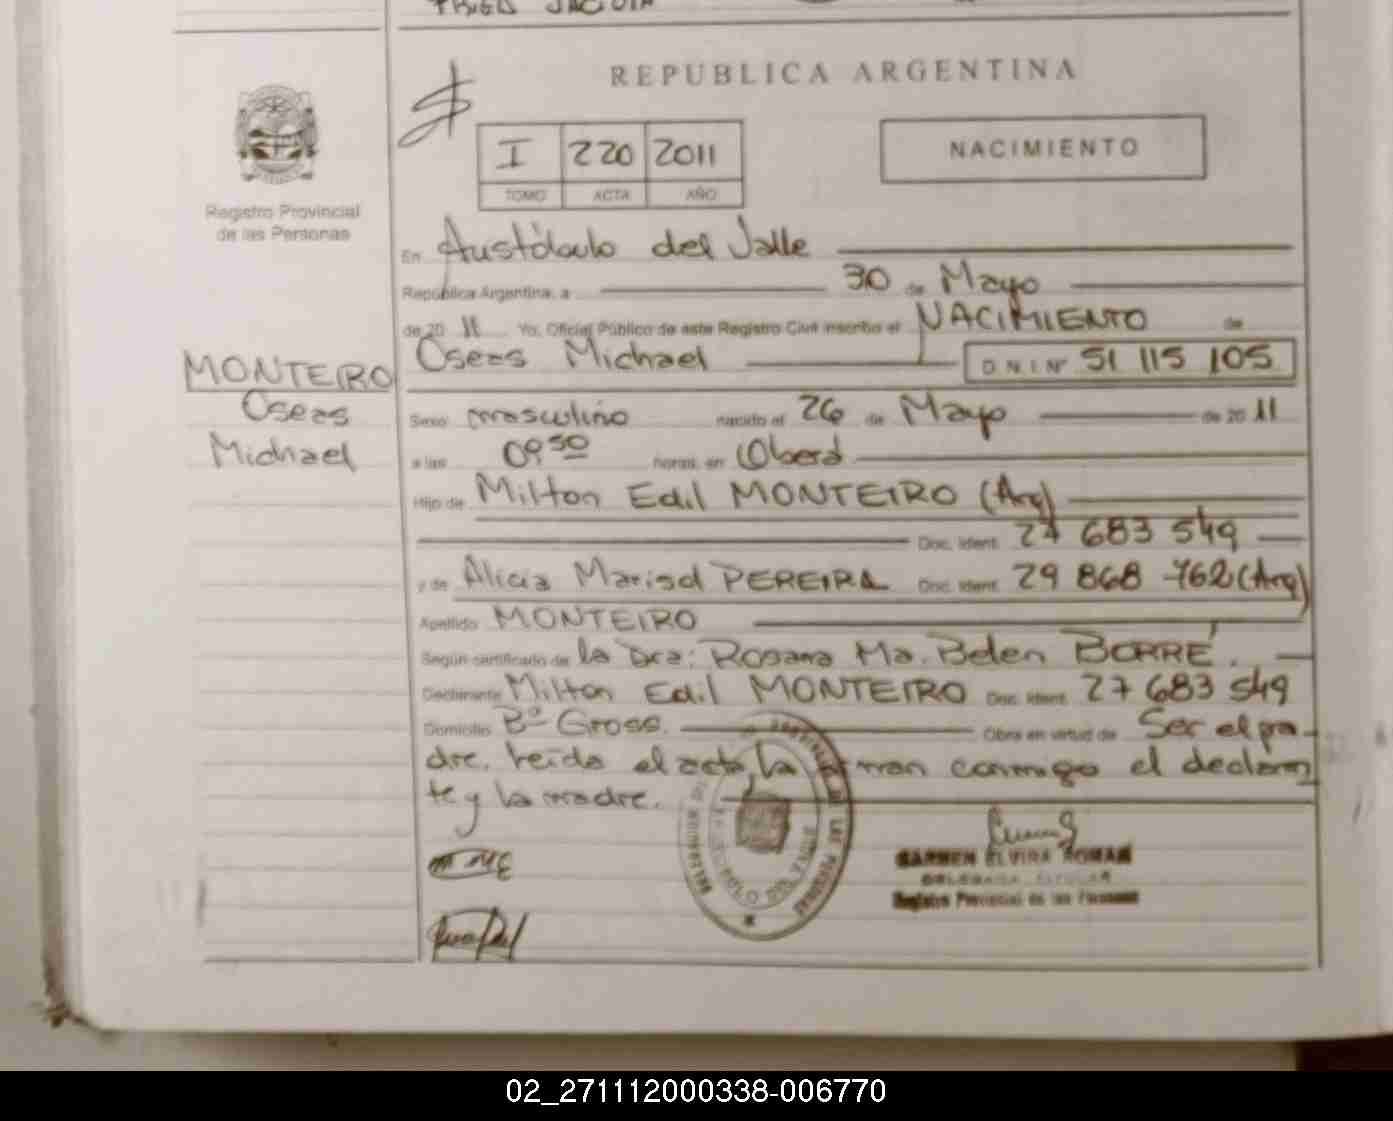 REPUBLICA ARGENTINA
I 220 2011
TOMO ACTA AÑO
NACIMIENTO
Registro Provincial
de las Personas
En Aristóbulo del Valle
República Argentina, a 30 de Mayo
de 20 11 Yo, Oficial Público de este Registro Civil inscribo el NACIMIENTO de
Oseas Michael D N I Nº 51 115 105
MONTEIRO
Oseas
Michael
Sexo masculino nacido el 26 de Mayo de 20 11
a las 09 50 horas, en Oberá
Hijo de Milton Edil MONTEIRO (Arg)
Doc. Ident. 27 683 549
y de Alicia Marisol PEREIRA Doc. Ident. 29 868 762 (Arg)
Apellido MONTEIRO
Según certificado de la Dra: Rosana Ma. Belen BORRÉ.
Declarante Milton Edil MONTEIRO Doc. Ident. 27 683 549
Domicilio Bº Gross. Obra en virtud de Ser el pa-
dre. leída el acta, la firman conmigo el declaran
te y la madre.
CARMEN ELVIRA ROMAN
DELEGADA TITULAR
Registro Provincial de las Personas
02_271112000338-006770